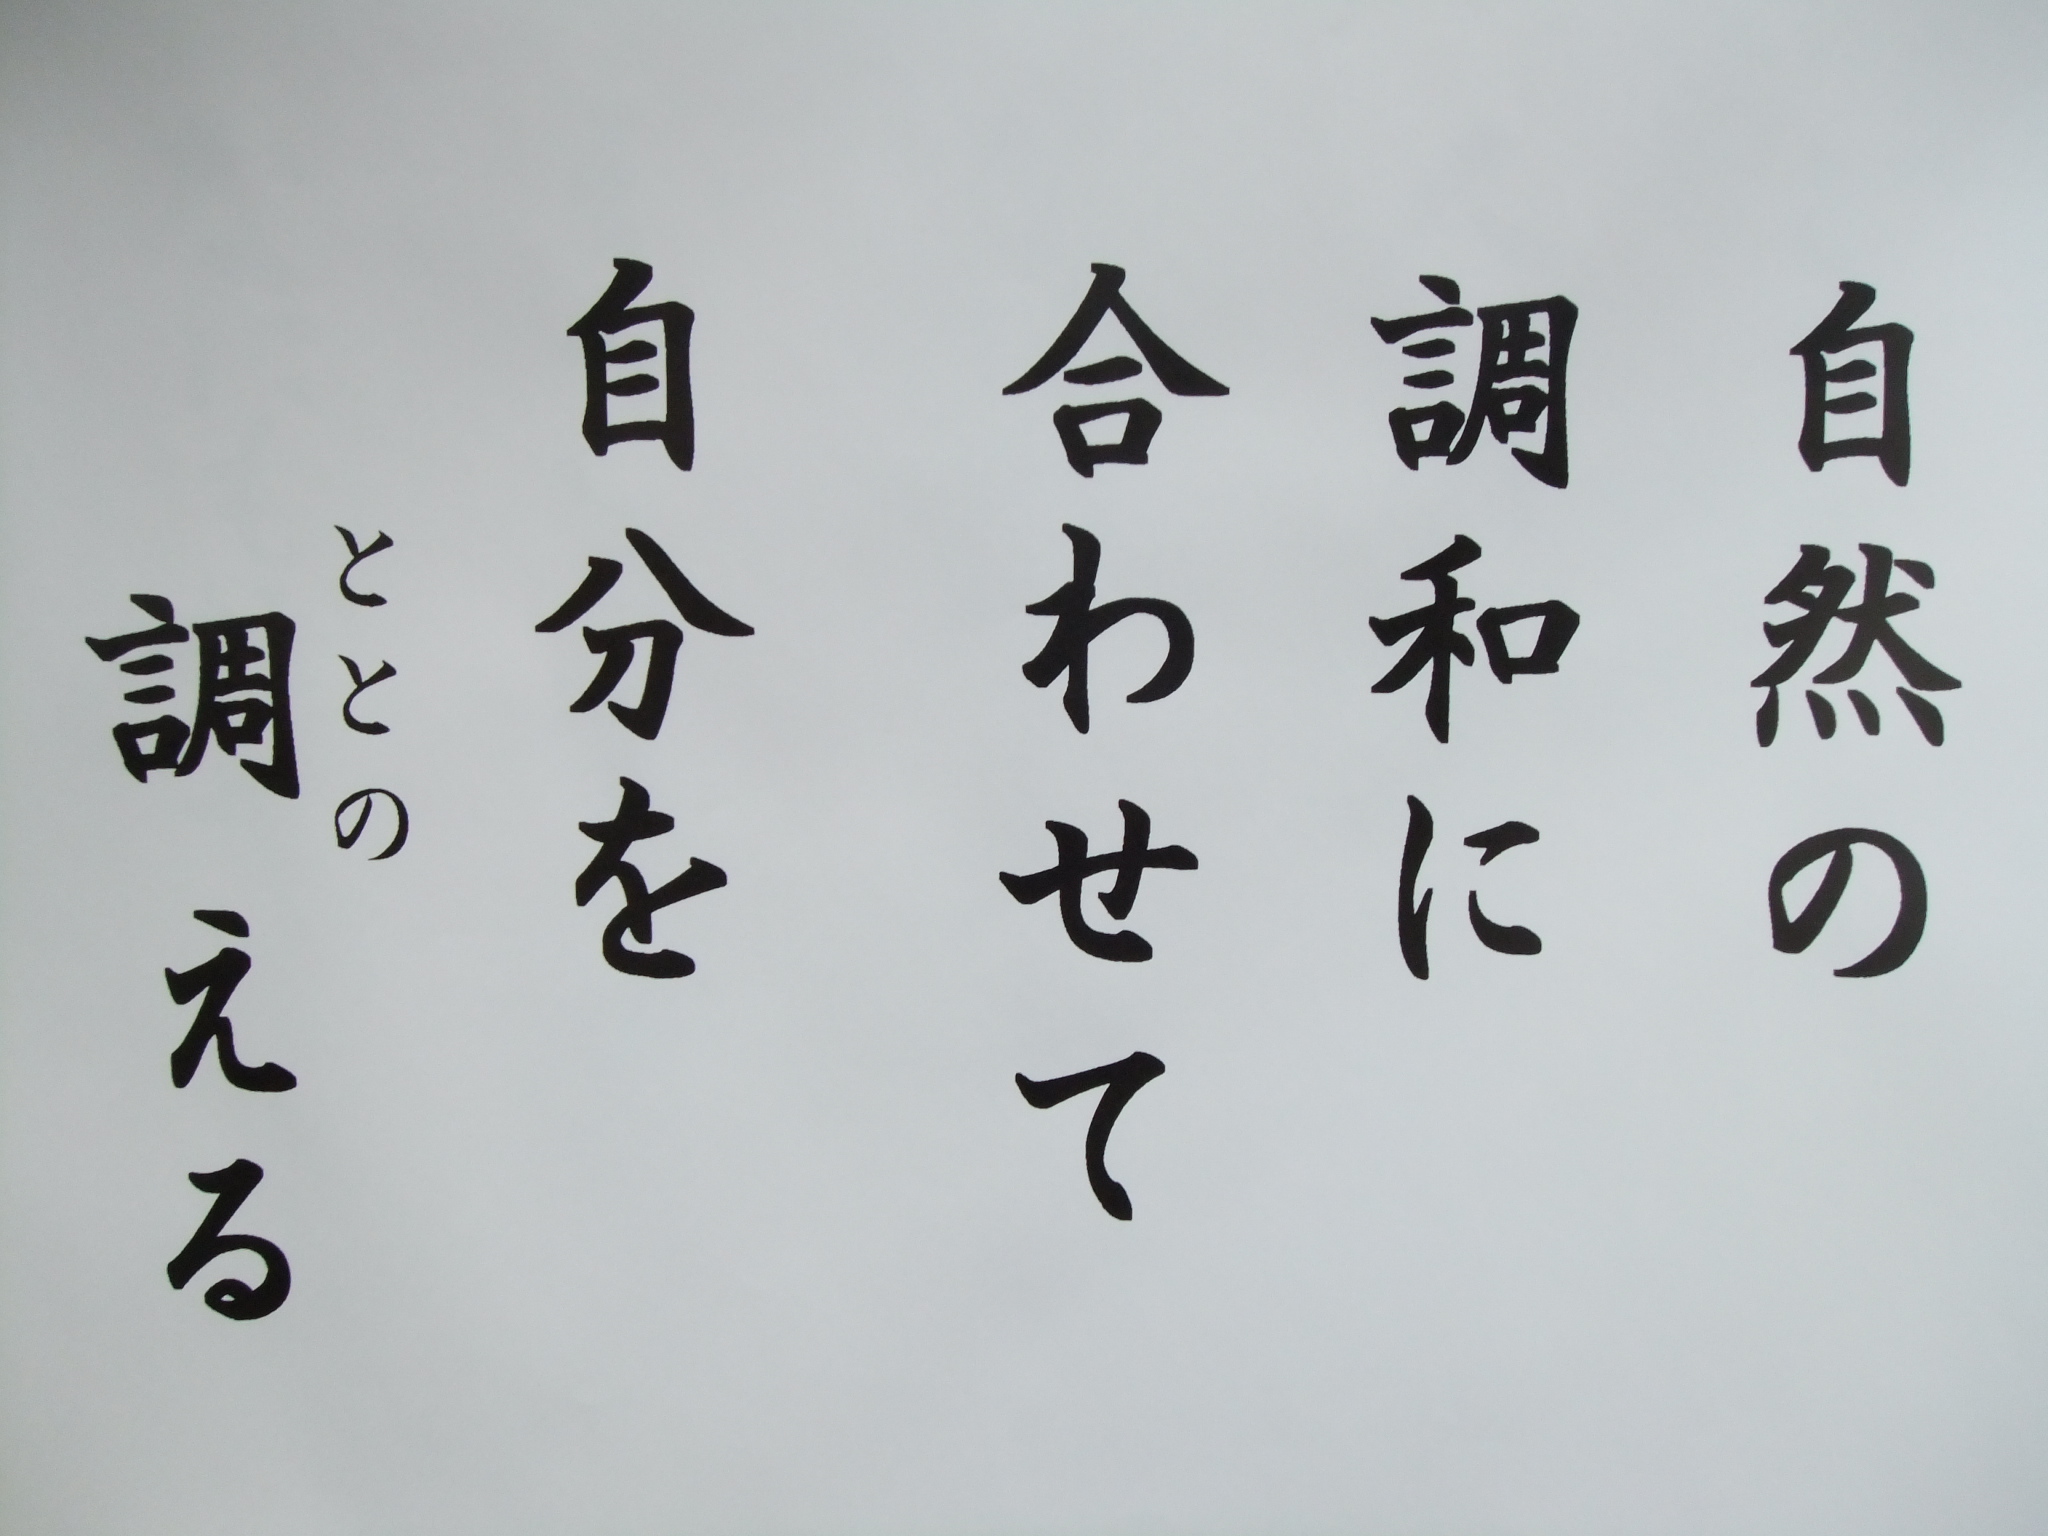 自然の
調和に
合わせて
自分を
ととの
調える